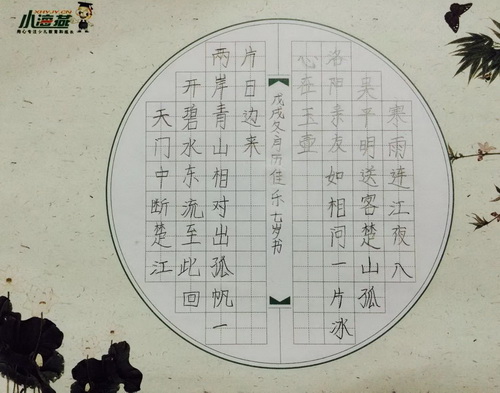 小海燕
XHYJY.CN
寒雨连江夜入
吴平明送客楚山孤
洛阳亲友如相问一片冰
心壶玉壶
戊戌冬月历佳乐七岁书
天门中断楚江
开碧水东流至此回
两岸青山相对出孤帆一
片日边来